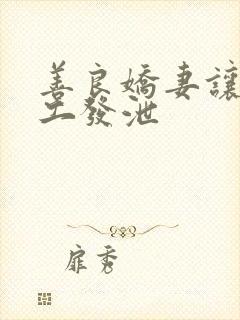 善良嬌妻讓
工發泄
扉秀